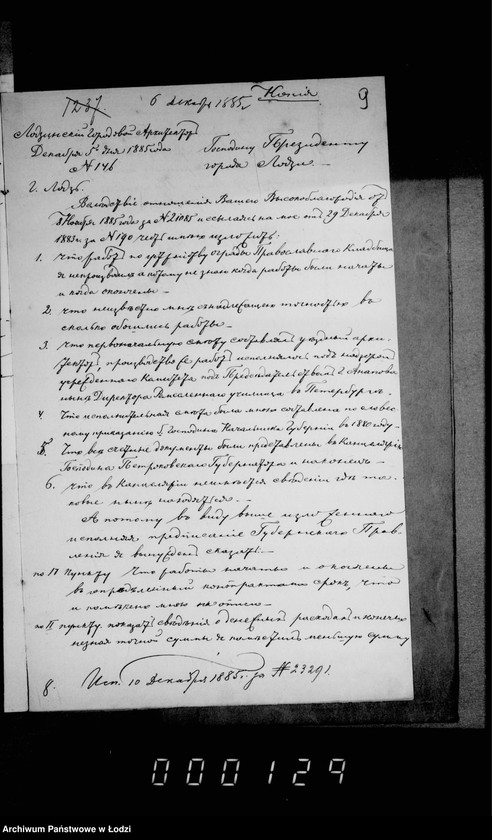 1237.
6 декабря 1885 г.
Копія
9
Лодзинскій Городовой Архитекторъ
Декабря 5 дня 1885 года
№ 146
г. Лодзь.
Господину Президенту
города Лодзи
Вслѣдствіе отношенія Вашего Высокоблагородія отъ
8 Ноября 1885 года за № 21085 и ссылаясь на мое отъ 29 Декабря
1883 г. за № 190 честь имѣю изложить:
1. Что работъ по устройству ограды Православнаго Кладбища
я не производилъ а потому не знаю когда работы были начаты
и когда окончены
2. что неизвѣстно мнѣ съ надлежащею точностью въ
сколько обошлись работы
3. что первоначальную смѣту составлялъ уѣздный архи-
текторъ, производство же работъ исполнялось подъ надзоромъ
учрежденнаго Комитета подъ Предсѣдательствомъ г.
нынѣ Директора Ремесленнаго училища въ
4. Что исполнительная смѣта была мною составлена по словес-
ному приказанію Господина Начальника Губерніи въ 1880 году
5. Что всѣ счетные документы были представлены въ Канцелярію
Господина Петроковскаго Губернатора и наконецъ
6. что въ Канцеляріи не имѣется свѣденій гдѣ та-
ковые нынѣ находятся.
А потому въ виду выше изложеннаго
исполняя предписаніе Губернскаго Прав-
ленія я вынужденъ сказать:
по I пункту что работы начаты и окончены
въ опредѣленный контрактами срокъ, что
и помѣчено мною на описи
по II пункту показать свѣдѣнія о денежныхъ расходахъ и конечно
незная точной суммы я помѣстилъ меньшую сумму
8.
Исп. 10 Декабря 1885 г. за № 23291.
000129
Archiwum Państwowe w Łodzi